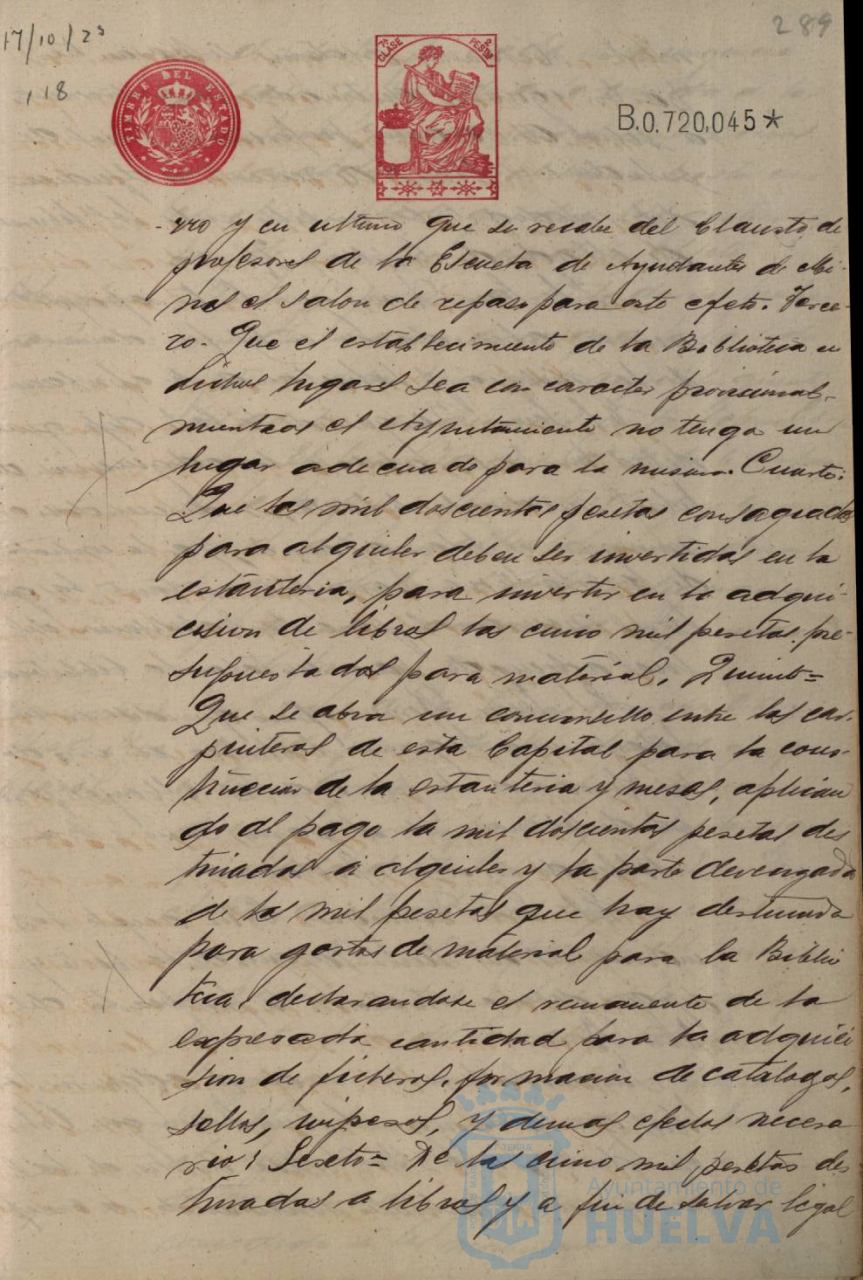 17/10/23
289
118
TIMBRE DEL ESTADO
7ª CLASE 2 PESTAS
B.0.720.045*
-rro y en ultimo que se recabe del Claustro de
profesores de la Escuela de Ayudantes de Mi-
nas el salon de repaso para este efeto. Terce-
ro- Que el establecimiento de la Biblioteca en
dichos lugares sea con caracter provisional-
mientras el Ayuntamiento no tenga un
lugar adecuado para la misma. Cuarto:
Que las mil doscientas pesetas consagradas
para alquiler deben ser invertidas en la
estanteria, para invertir en la adqui-
cision de libros las cinco mil pesetas pre-
supuestadas para material. Quinto=
Que se abra un concursillo entre los car-
pinteros de esta Capital para la cons-
trucción de la estanteria y mesas, aplican
do al pago la mil doscientas pesetas des
tinadas a alquiler y la parte devengada
de las mil pesetas que hay destinada
para gastos de material para la Biblio
teca, declarandose el remanente de la
expresada cantidad para la adquici
sion de ficheros, formacion de catalogos,
sellos, impesos, y demas efectos necesa
rios Sexto= De la cinco mil pesetas des
tinadas a libros y a fin de salvar legal
Ayuntamiento de
HUELVA